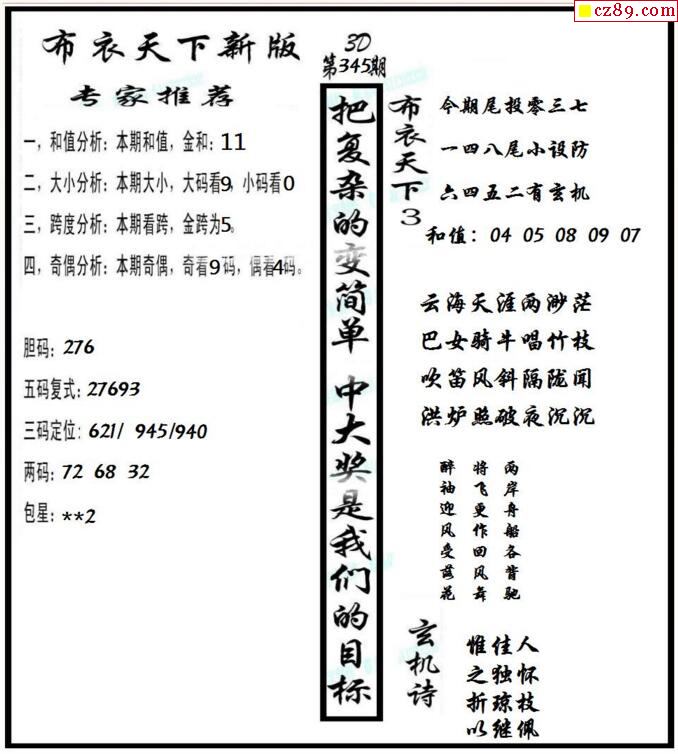 cz89.com
布衣天下新版
专家推荐
一，和值分析：本期和值，金和：11
二，大小分析：本期大小，大码看9，小码看0
三，跨度分析：本期看跨，金跨为5。
四，奇偶分析：本期奇偶，奇看9码，偶看4码。
胆码：276
五码复式：27693
三码定位：621/ 945/940
两码：72 68 32
包星：**2
3D
第345期
把复杂的变简单 中大奖是我们的目标
布衣天下3
今期尾投零三七
一四八尾小设防
六四五二有玄机
和值：04 05 08 09 07
云海天涯两渺茫
巴女骑牛唱竹枝
吹笛风斜隔陇闻
洪炉照破夜沉沉
两岸舟船各背驰
将飞更作回风舞
醉袖迎风受落花
玄机诗
惟佳人
之独怀
折琼枝
以继佩